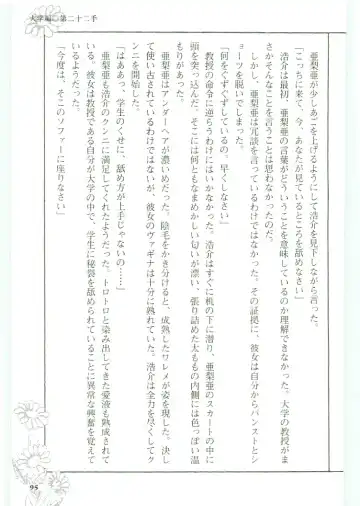 大学編 第二十二手
　亜梨亜が少しあごを上げるようにして浩介を見下しながら言った。
「こっちに来て、今、あなたが見ているところを舐めなさい」
　浩介は最初、亜梨亜の言葉がどういうことを意味しているのか理解できなかった。大学の教授がま
さかそんなことを言うことは思わなかったのだ。
　しかし、亜梨亜は冗談を言っているわけではなかった。その証拠に、彼女は自分からパンストとシ
ョーツを脱いでしまった。
「何をぐずぐずしているの。早くしなさい」
　教授の命令に逆らうわけにはいかなかった。浩介はすぐに机の下に潜り、亜梨亜のスカートの中に
頭を突っ込んだ。そこには何ともなまめかしい匂いが漂い、張り詰めた太ももの内側には色っぽい温
もりがあった。
　亜梨亜はアンダーヘアが濃いめだった。陰毛をかき分けると、成熟したワレメが姿を現した。決し
て使い古されているわけではないが、彼女のヴァギナは十分に熟れていた。浩介は全力を尽くしてク
ンニを開始した。
「はああっ。学生のくせに、舐め方が上手じゃないの……」
　亜梨亜も浩介のクンニに満足してくれたようだった。トロトロと染み出してきた愛液も熟成されて
いる。彼女は教授である自分が大学の中で、学生に秘裂を舐められていることに異常な興奮を覚えて
いるようだった。
「今度は、そこのソファーに座りなさい」
95